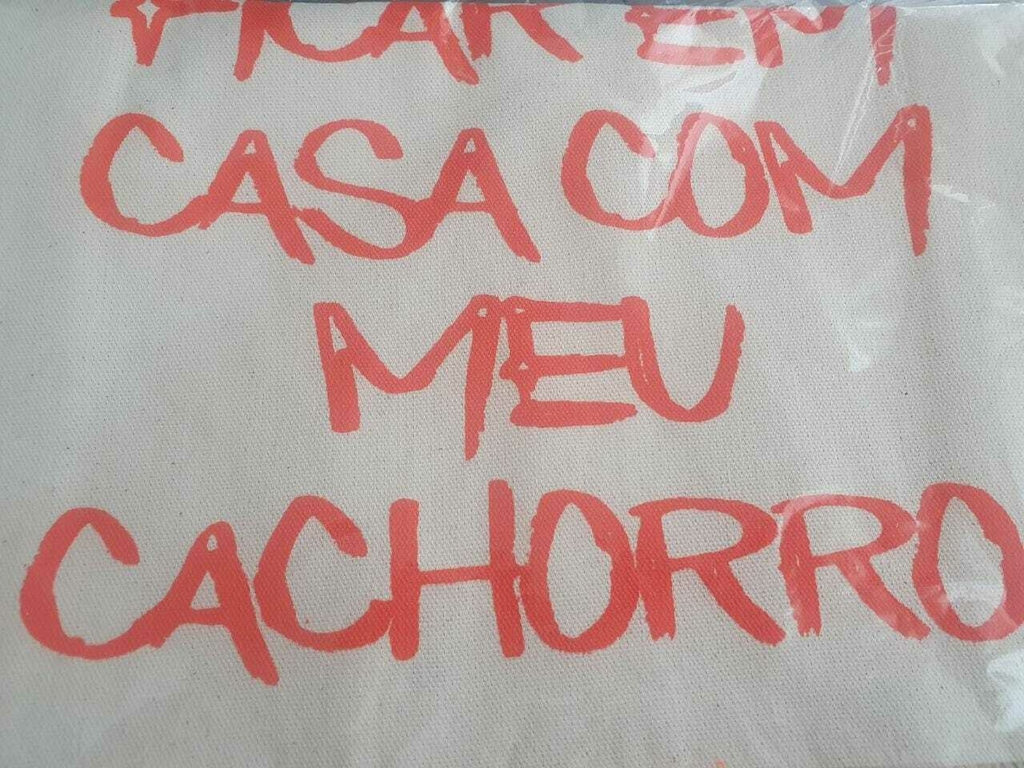 FICAR EM
CASA COM
MEU
CACHORRO